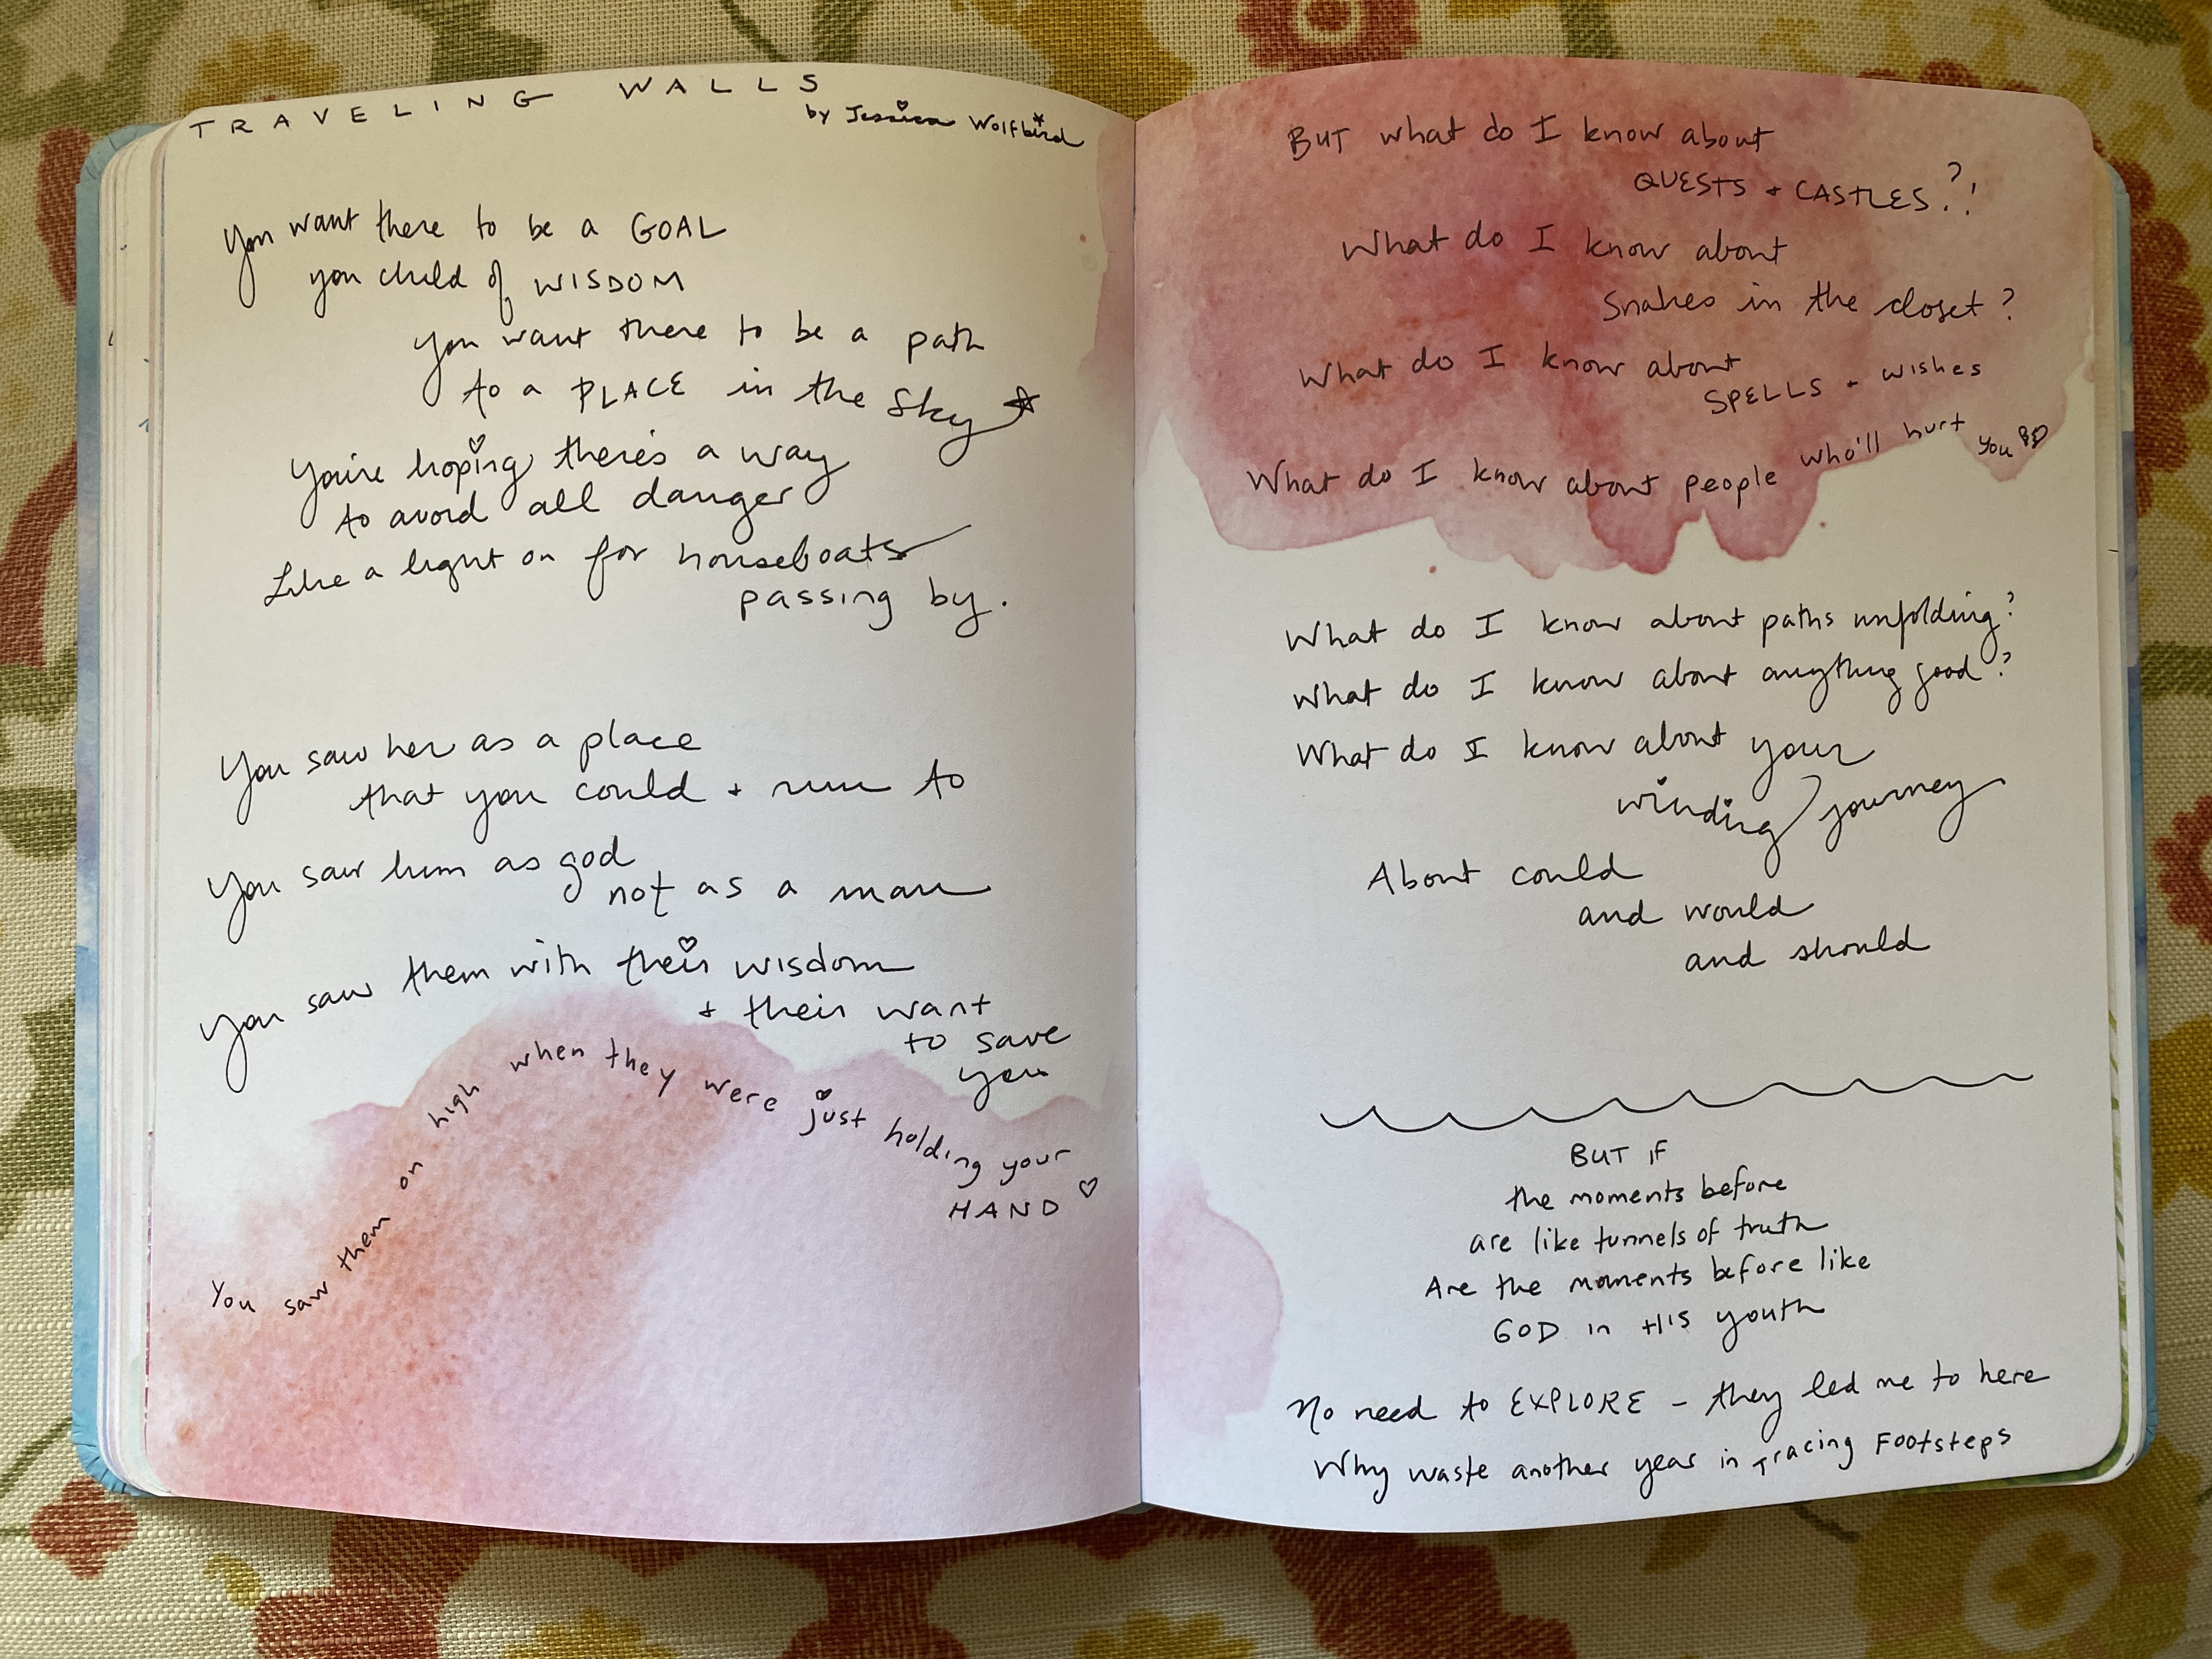 TRAVELING WALLS
by Jessica Wolfbird
You want there to be a GOAL
you child of WISDOM
You want there to be a path
to a PLACE in the sky
You're hoping there's a way
to avoid all danger
Like a light on for houseboats
passing by.
You saw her as a place
that you could + run to
You saw him as god
not as a man
You saw them with their wisdom
+ their want
to save
you
You saw them on high when they were just holding your
HAND
BUT what do I know about
QUESTS + CASTLES?!
What do I know about
Snakes in the closet?
What do I know about
SPELLS + wishes
What do I know about people who'll hurt you
What do I know about paths unfolding?
What do I know about anything good?
What do I know about your
winding journey
About could
and would
and should
BUT IF
the moments before
are like tunnels of truth
Are the moments before like
GOD in HIS youth
No need to EXPLORE - they led me to here
Why waste another year in Tracing Footsteps